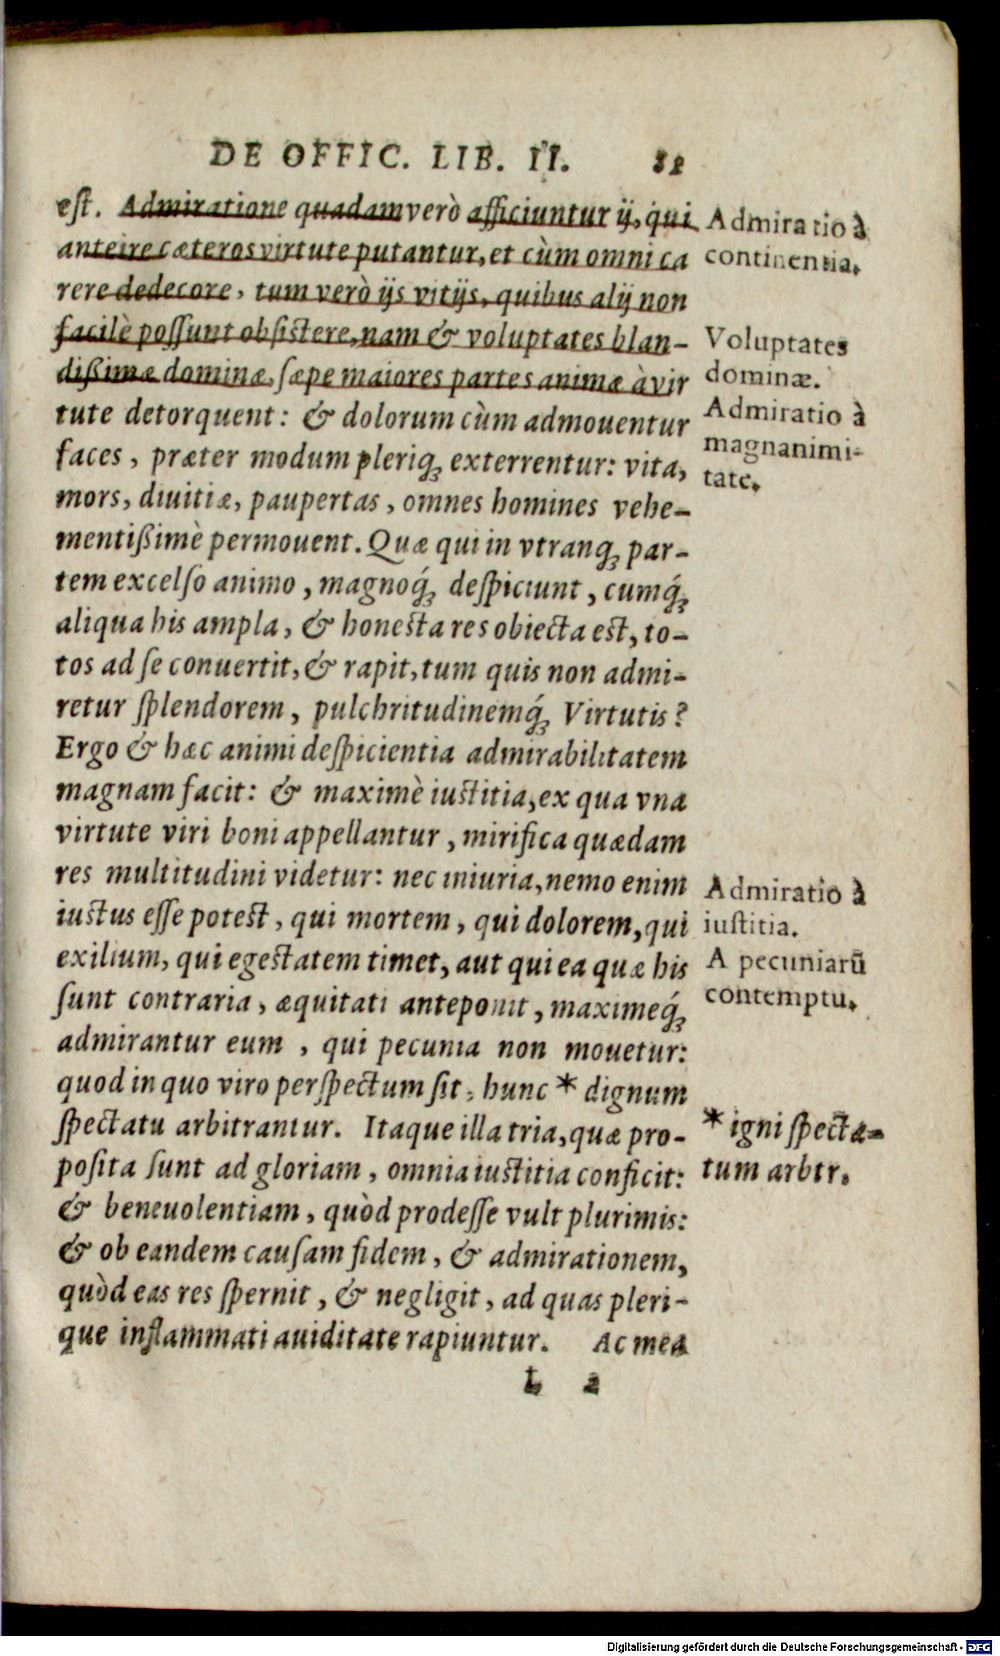 DE OFFIC. LIB. II. 82
est. Admiratione quadam verò afficiuntur ij, qui
anteire cæteros virtute putantur, et cùm omni ca
rere dedecore, tum verò ijs vitijs, quibus alij non
facilè possunt obsistere, nam & voluptates blan-
dißimæ dominæ, sæpe maiores partes animæ à vir
tute detorquent: & dolorum cùm admouentur
faces, præter modum pleriq; exterrentur: vita,
mors, diuitiæ, paupertas, omnes homines vehe-
mentißimè permouent. Quæ qui in vtranq; par-
tem excelso animo, magnoq́; despiciunt, cumq́;
aliqua his ampla, & honesta res obiecta est, to-
tos ad se conuertit, & rapit, tum quis non admi-
retur splendorem, pulchritudinemq́; Virtutis?
Ergo & hæc animi despicientia admirabilitatem
magnam facit: & maximè iustitia, ex qua vna
virtute viri boni appellantur, mirifica quædam
res multitudini videtur: nec iniuria, nemo enim
iustus esse potest, qui mortem, qui dolorem, qui
exilium, qui egestatem timet, aut qui ea quæ his
sunt contraria, æquitati anteponit, maximeq́;
admirantur eum, qui pecunia non mouetur:
quod in quo viro perspectum sit, hunc * dignum
spectatu arbitrantur. Itaque illa tria, quæ pro-
posita sunt ad gloriam, omnia iustitia conficit:
& beneuolentiam, quòd prodesse vult plurimis:
& ob eandem causam fidem, & admirationem,
quòd eas res spernit, & negligit, ad quas pleri-
que inflammati auiditate rapiuntur. Ac mea
L 2
Admiratio à
continentia.
Voluptates
dominæ.
Admiratio à
magnanimi-
tate.
Admiratio à
iustitia.
A pecuniarũ
contemptu.
* igni spectæ-
tum arbtr.
Digitalisierung gefördert durch die Deutsche Forschungsgemeinschaft - DFG